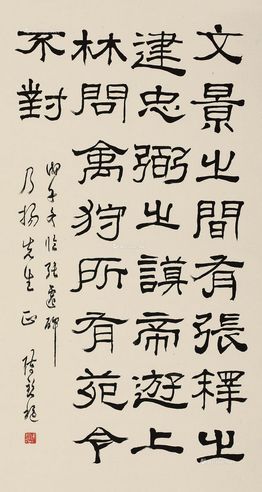 文景之間有張釋之
建忠弼之謨帝遊上
林問禽狩所有苑令
不對
冬臨張遷碑
乃揚先生正